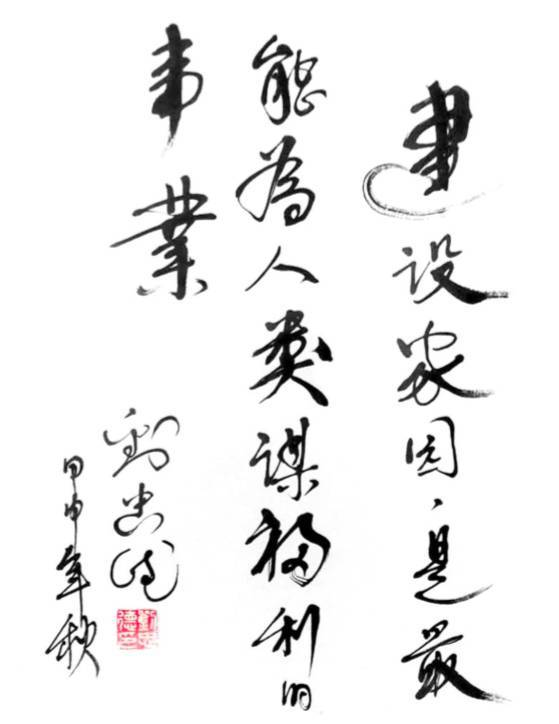 建设家园,是最
能为人类谋福利的
事业
刘忠德
甲申年秋